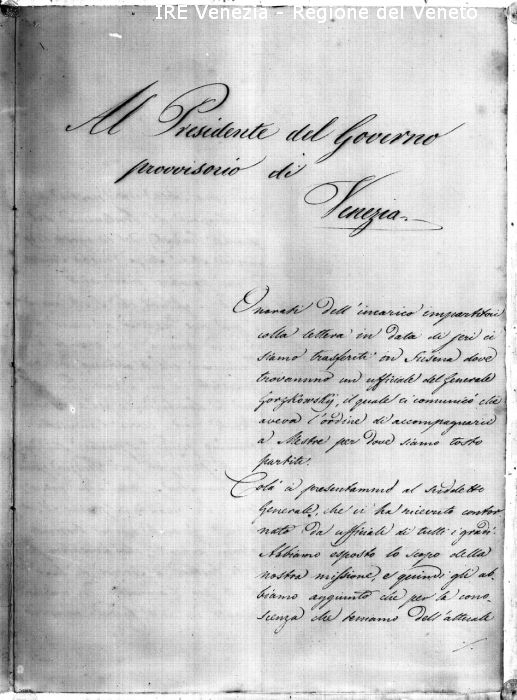 IRE Venezia - Regione del Veneto
Al Presidente del Governo
provvisorio di
Venezia
Onorati dell'incarico impartitoci
colla lettera in data di jeri ci
siamo trasferiti in Fusina dove
trovammo un ufficiale del Generale
Gorzkowsky, il quale ci comunicò che
aveva l'ordine di accompagnarci
a Mestre per dove siamo tosto
partiti.
Colà ci presentammo al suddetto
Generale, che ci ha ricevuto contor
nato da ufficiale di tutti i gradi.
Abbiamo esposto lo scopo della
nostra missione, e quindi gli ab
biamo aggiunto che per la cono
scenza che teniamo dell'attuale